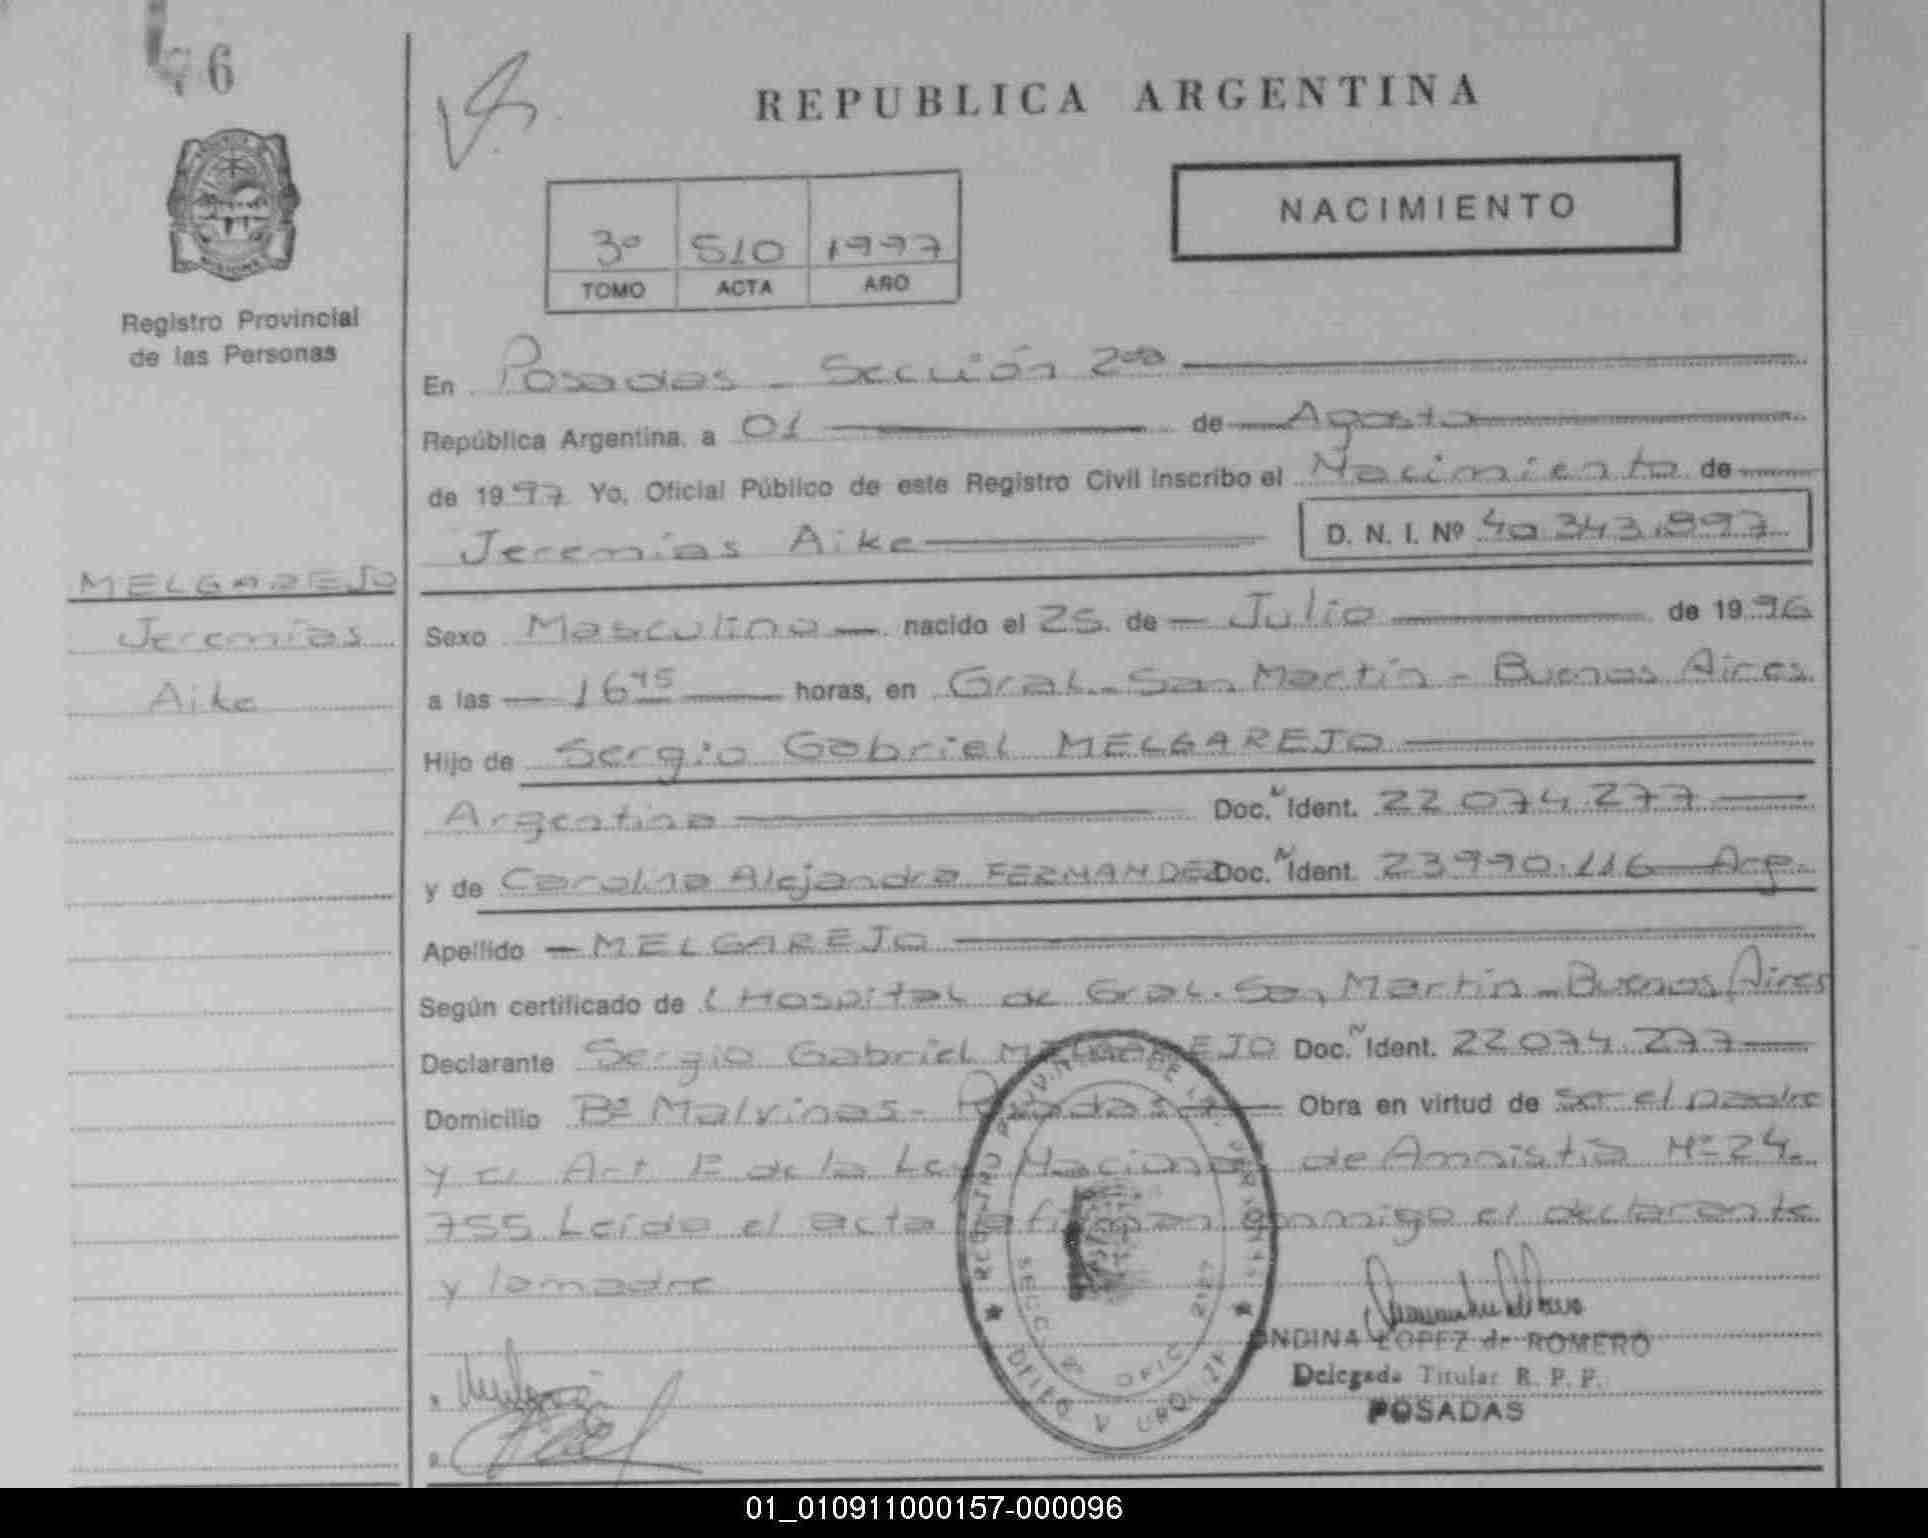 76
REPUBLICA ARGENTINA
NACIMIENTO
3º 510 1997
TOMO ACTA AÑO
Registro Provincial
de las Personas
En Posadas - Sección 2da
República Argentina, a 01 de Agosto
de 1997 Yo, Oficial Público de este Registro Civil inscribo el Nacimiento de
Jeremías Aike D. N. I. Nº 40.343.897
MELGAREJO
Jeremías
Aike
Sexo Masculino nacido el 25 de Julio de 1996
a las 16 45 horas, en Gral. San Martín - Buenos Aires
Hijo de Sergio Gabriel MELGAREJO
Argentino Doc. Ident. 22.074.277
y de Carolina Alejandra FERNANDEZ Doc. Ident. 23.990.116 Arg.
Apellido MELGAREJO
Según certificado del Hospital de Gral. San Martín - Buenos Aires
Declarante Sergio Gabriel MELGAREJO Doc. Ident. 22.074.277
Domicilio Bº Malvinas - Posadas Obra en virtud de ser el padre
y el Art 1º de la Ley Nacional de Amnistía Nº 24.
755. Leída el acta la firman conmigo el declarante
y la madre
REGISTRO PROVINCIAL DE LAS PERSONAS
SECC. 2ª OFIC. 2127
ONDINA LOPEZ de ROMERO
Delegada Titular R. P. P.
POSADAS
01_010911000157-000096